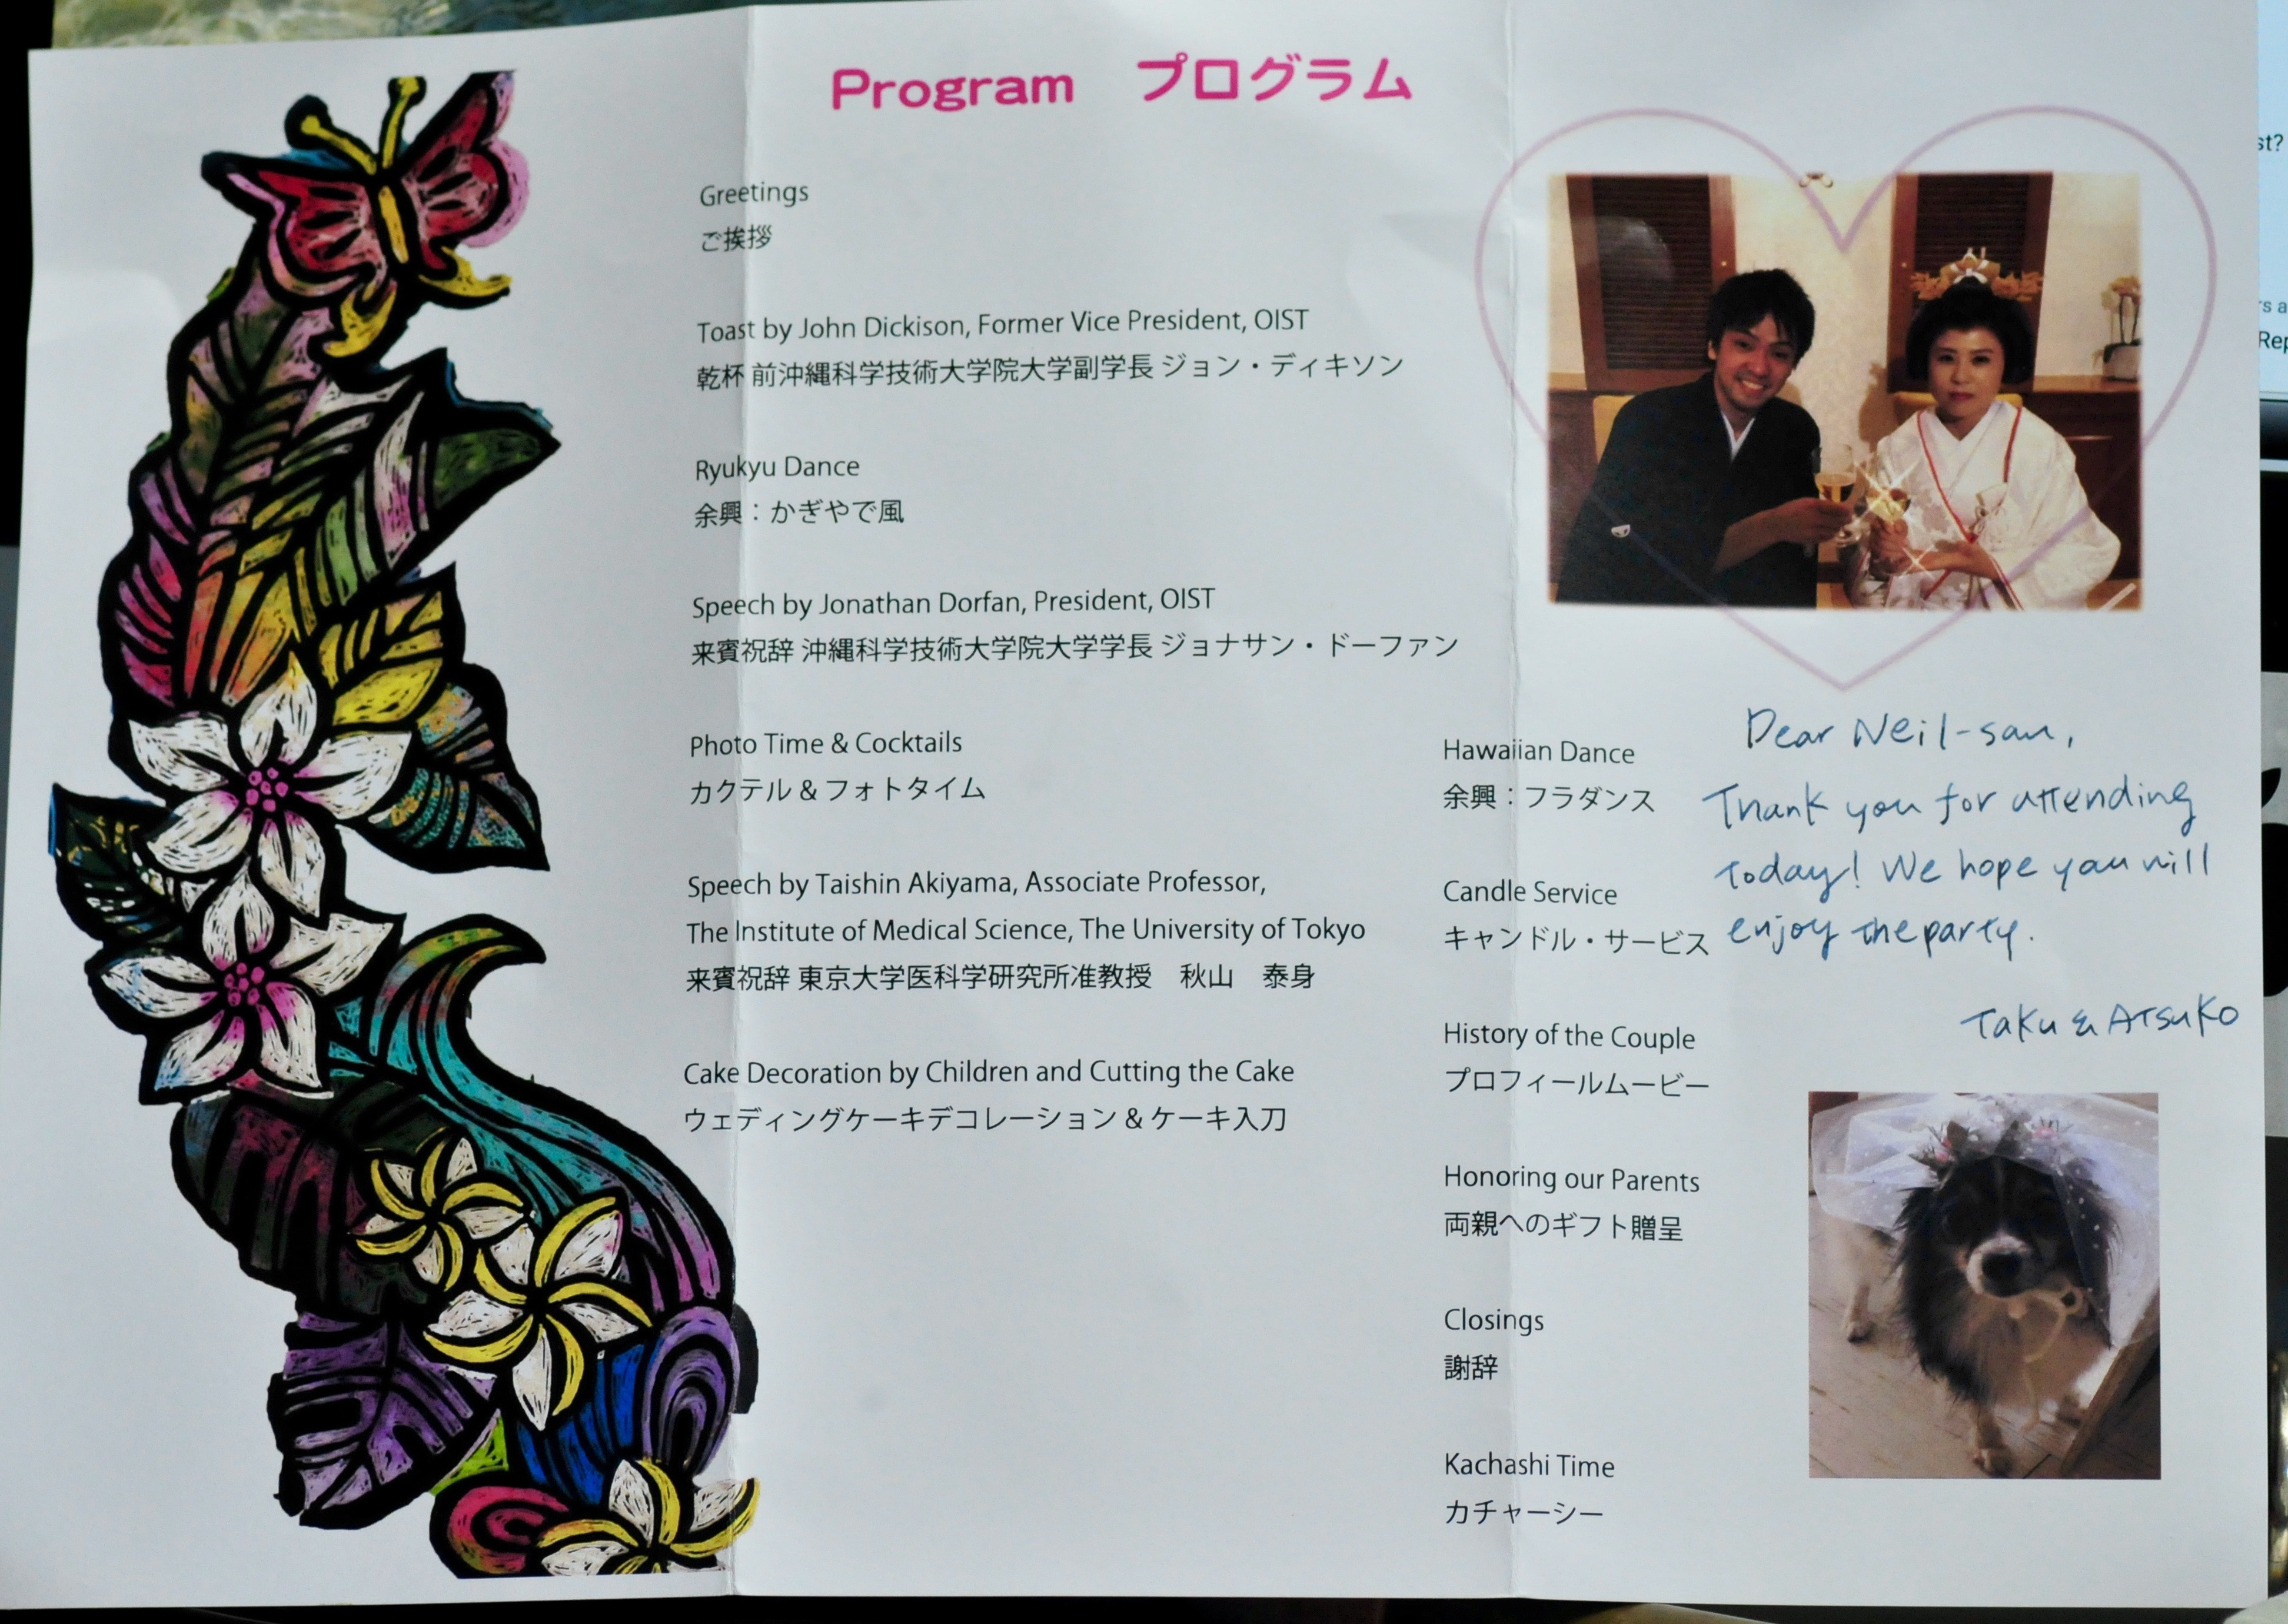 Program プログラム
Greetings
ご挨拶
Toast by John Dickison, Former Vice President, OIST
乾杯 前沖縄科学技術大学院大学副学長 ジョン・ディキソン
Ryukyu Dance
余興：かぎやで風
Speech by Jonathan Dorfan, President, OIST
来賓祝辞 沖縄科学技術大学院大学学長 ジョナサン・ドーファン
Photo Time & Cocktails
カクテル & フォトタイム
Speech by Taishin Akiyama, Associate Professor,
The Institute of Medical Science, The University of Tokyo
来賓祝辞 東京大学医科学研究所准教授　秋山　泰身
Cake Decoration by Children and Cutting the Cake
ウェディングケーキデコレーション & ケーキ入刀
Hawaiian Dance
余興：フラダンス
Candle Service
キャンドル・サービス
History of the Couple
プロフィールムービー
Honoring our Parents
両親へのギフト贈呈
Closings
謝辞
Kachashi Time
カチャーシー
Dear Neil-san,
Thank you for attending
today! We hope you will
enjoy the party.
Taku & Atsuko
st?
rs a
Rep